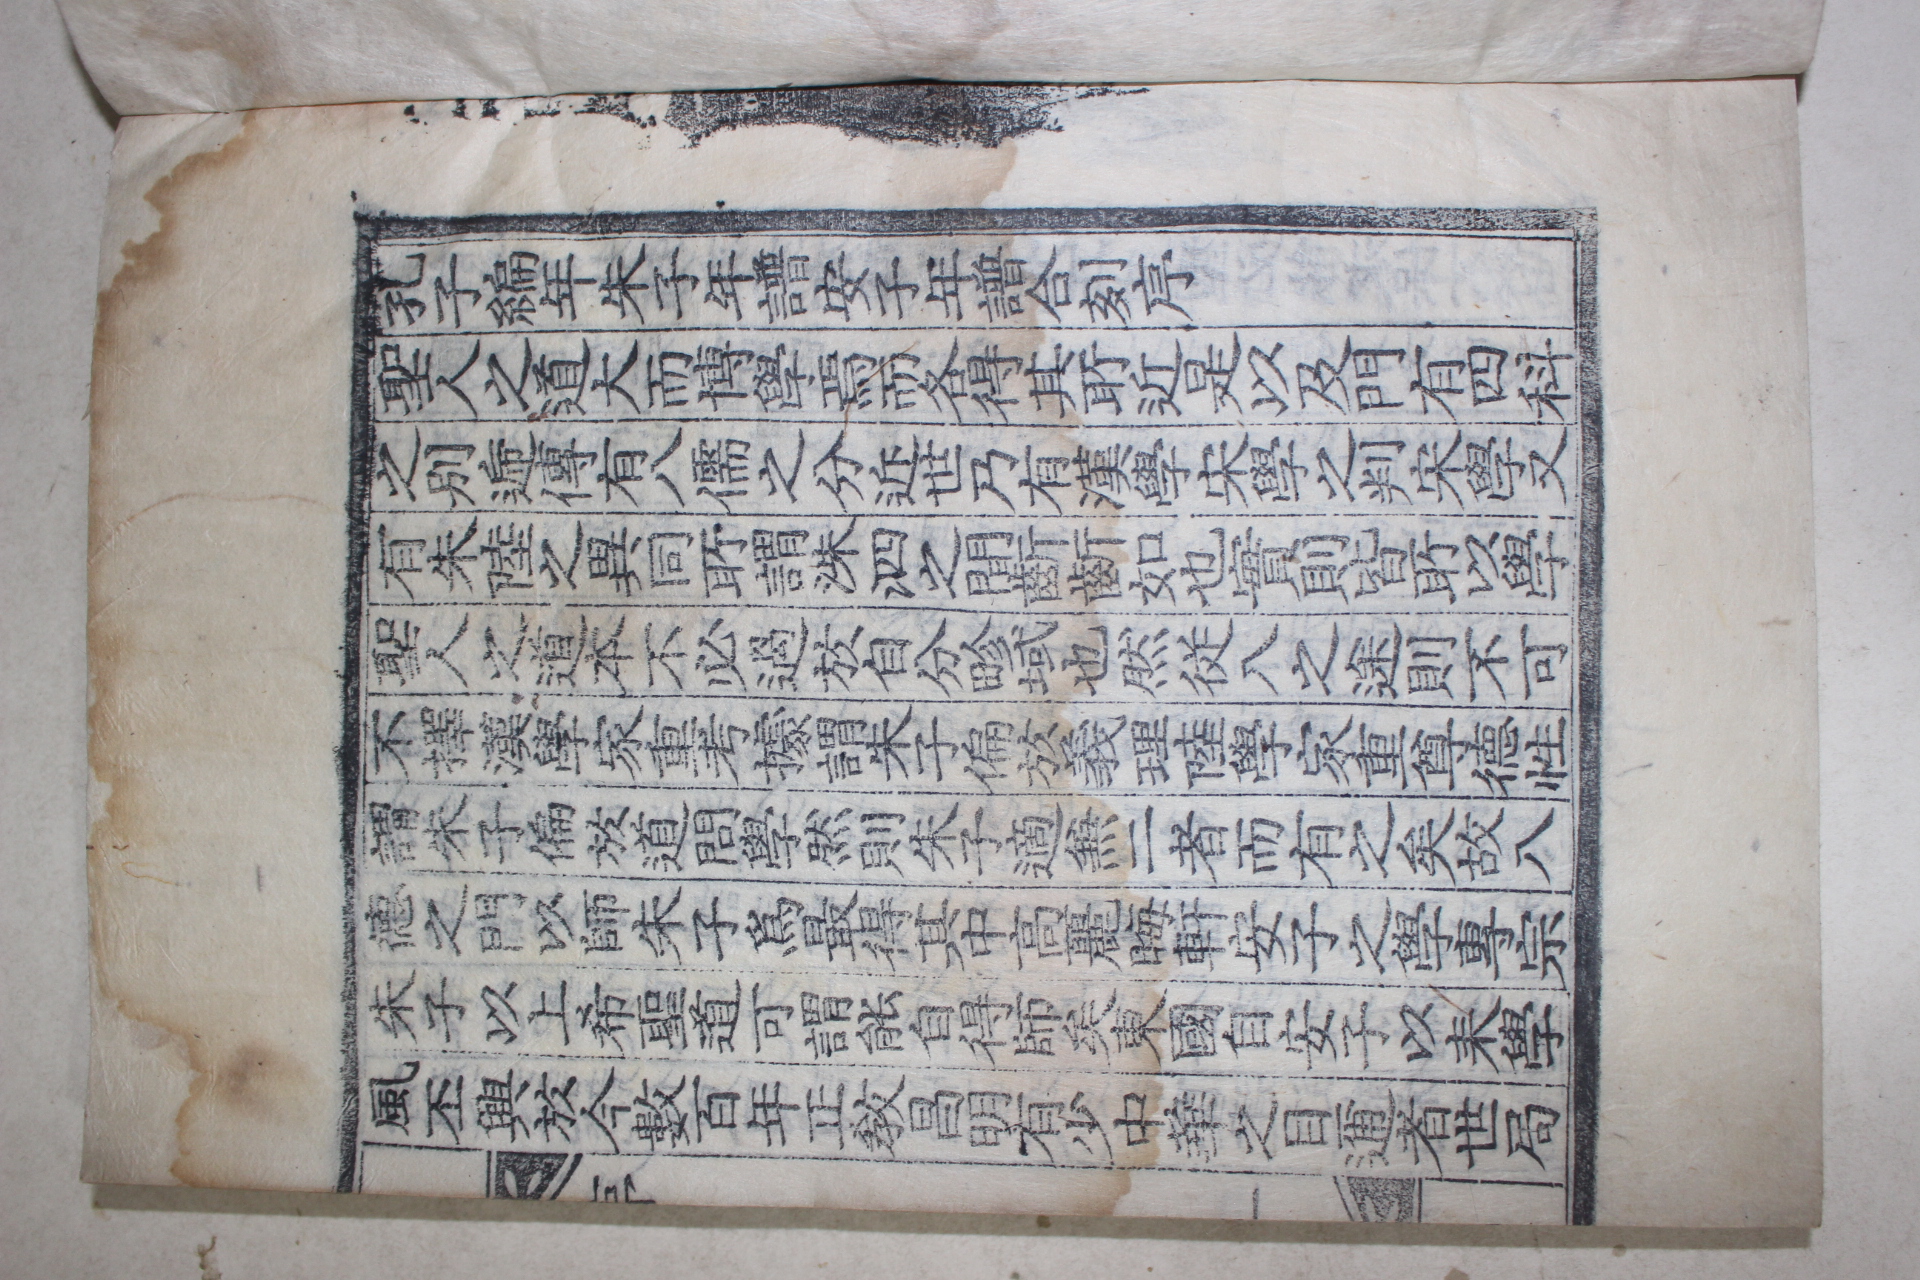 孔子編年朱子年譜安子年譜合刻序
聖人之道大而博學焉而各得其所近是以及門有四科
之別遞傳有八儒之分近世乃有漢學宋學之判宋學又
有朱陸之異同所謂洙泗之間齗齗如也實則皆所以學
聖人之道本不必過於自分畛域也然從入之途則不可
不擇漢學家重考據謂朱子偏於義理陸學家重尊德性
謂朱子偏於道問學然則朱子適無二者而有之矣故入
德之門以師朱子爲最得其中高麗晦軒安子之學專宗
朱子以上希聖道可謂能自得師矣東國自安子以來學
風丕興於今數百年正教昌明有少中華之目邇者世局
序
一